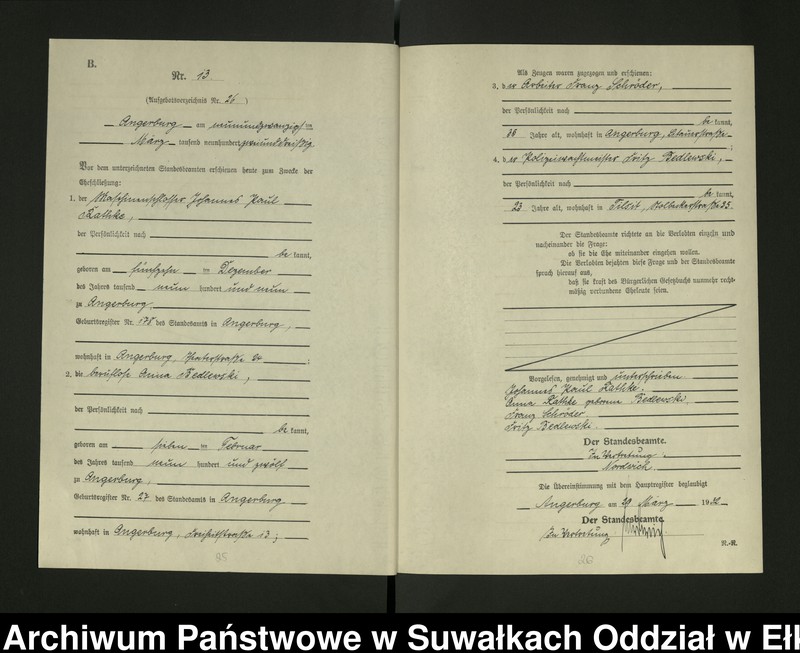 B.
Nr. 13.
(Aufgebotsverzeichnis Nr. 26)
Angerburg am neunundzwanzigsten
März tausend neunhundert zweiunddreißig
Vor dem unterzeichneten Standesbeamten erschienen heute zum Zwecke der
Eheschließung:
1. der Maschinenschlosser Johannes Paul
Kathke,
der Persönlichkeit nach
be kannt,
geboren am fünfzehn ten Dezember
des Jahres tausend neun hundert und neun
zu Angerburg,
Geburtsregister Nr. 178 des Standesamts in Angerburg,
wohnhaft in Angerburg, ;
2. die berufslose Anna Bedlewski,
der Persönlichkeit nach
be kannt,
geboren am sieben ten Februar
des Jahres tausend neun hundert und zwölf
zu Angerburg,
Geburtsregister Nr. 27 des Standesamts in Angerburg
wohnhaft in Angerburg, Freiheitstraße 13;
Als Zeugen waren zugezogen und erschienen:
3. d er Arbeiter Franz Schröder,
der Persönlichkeit nach
be kannt,
36 Jahre alt, wohnhaft in Angerburg,
;
4. d er Polizeiwachtmeister Fritz Bedlewski,
der Persönlichkeit nach
be kannt,
23 Jahre alt, wohnhaft in Tilsit, 25.
Der Standesbeamte richtete an die Verlobten einzeln und
nacheinander die Frage:
ob sie die Ehe miteinander eingehen wollen.
Die Verlobten bejahten diese Frage und der Standesbeamte
sprach hierauf aus,
daß sie kraft des Bürgerlichen Gesetzbuchs nunmehr recht-
mäßig verbundene Eheleute seien.
Vorgelesen, genehmigt und unterschrieben
Johannes Paul Kathke.
Anna Kathke geborene Bedlewski.
Franz Schröder.
Fritz Bedlewski.
Der Standesbeamte.
In Vertretung.
Nordwich.
Die Übereinstimmung mit dem Hauptregister beglaubigt
Angerburg am 29 März 1932
Der Standesbeamte.
In Vertretung
R.-R.
Archiwum Państwowe w Suwałkach Oddział w Ełk